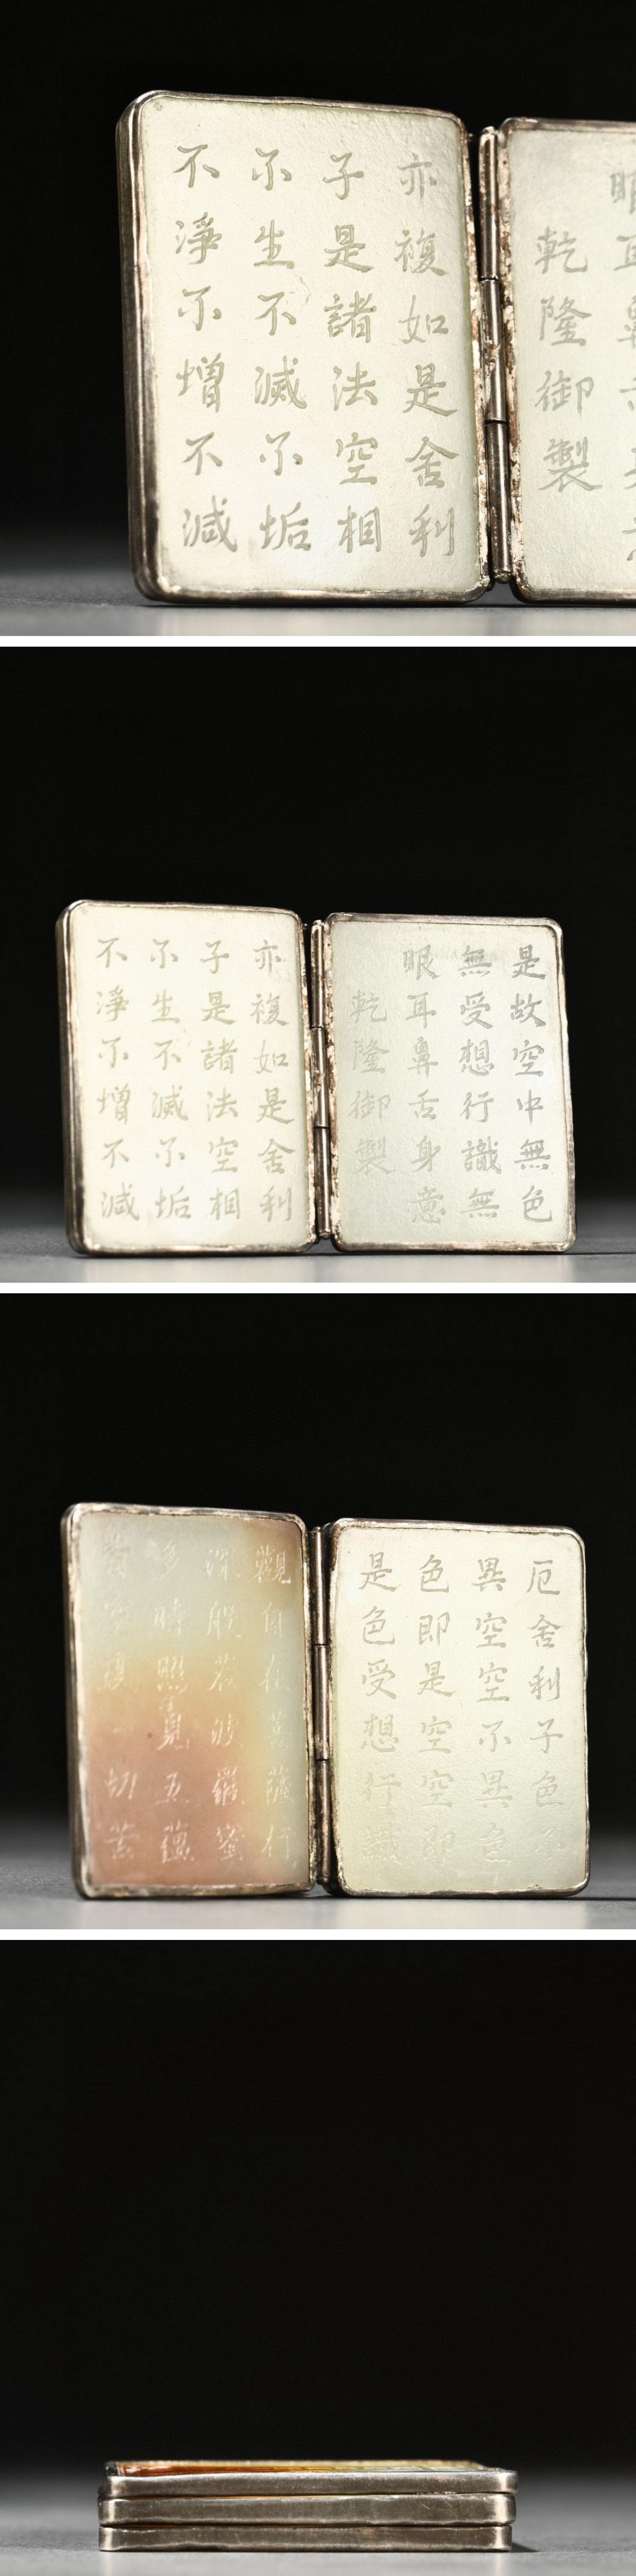 亦複如是舍利
子是諸法空相
不生不滅不垢
不淨不增不減
乾隆御製
亦複如是舍利
子是諸法空相
不生不滅不垢
不淨不增不減
是故空中無色
無受想行識無
眼耳鼻舌身意
乾隆御製
觀自在菩薩行
深般若波羅蜜
多時照見五蘊
皆空度一切苦
厄舍利子色不
異空空不異色
色即是空空即
是色受想行識